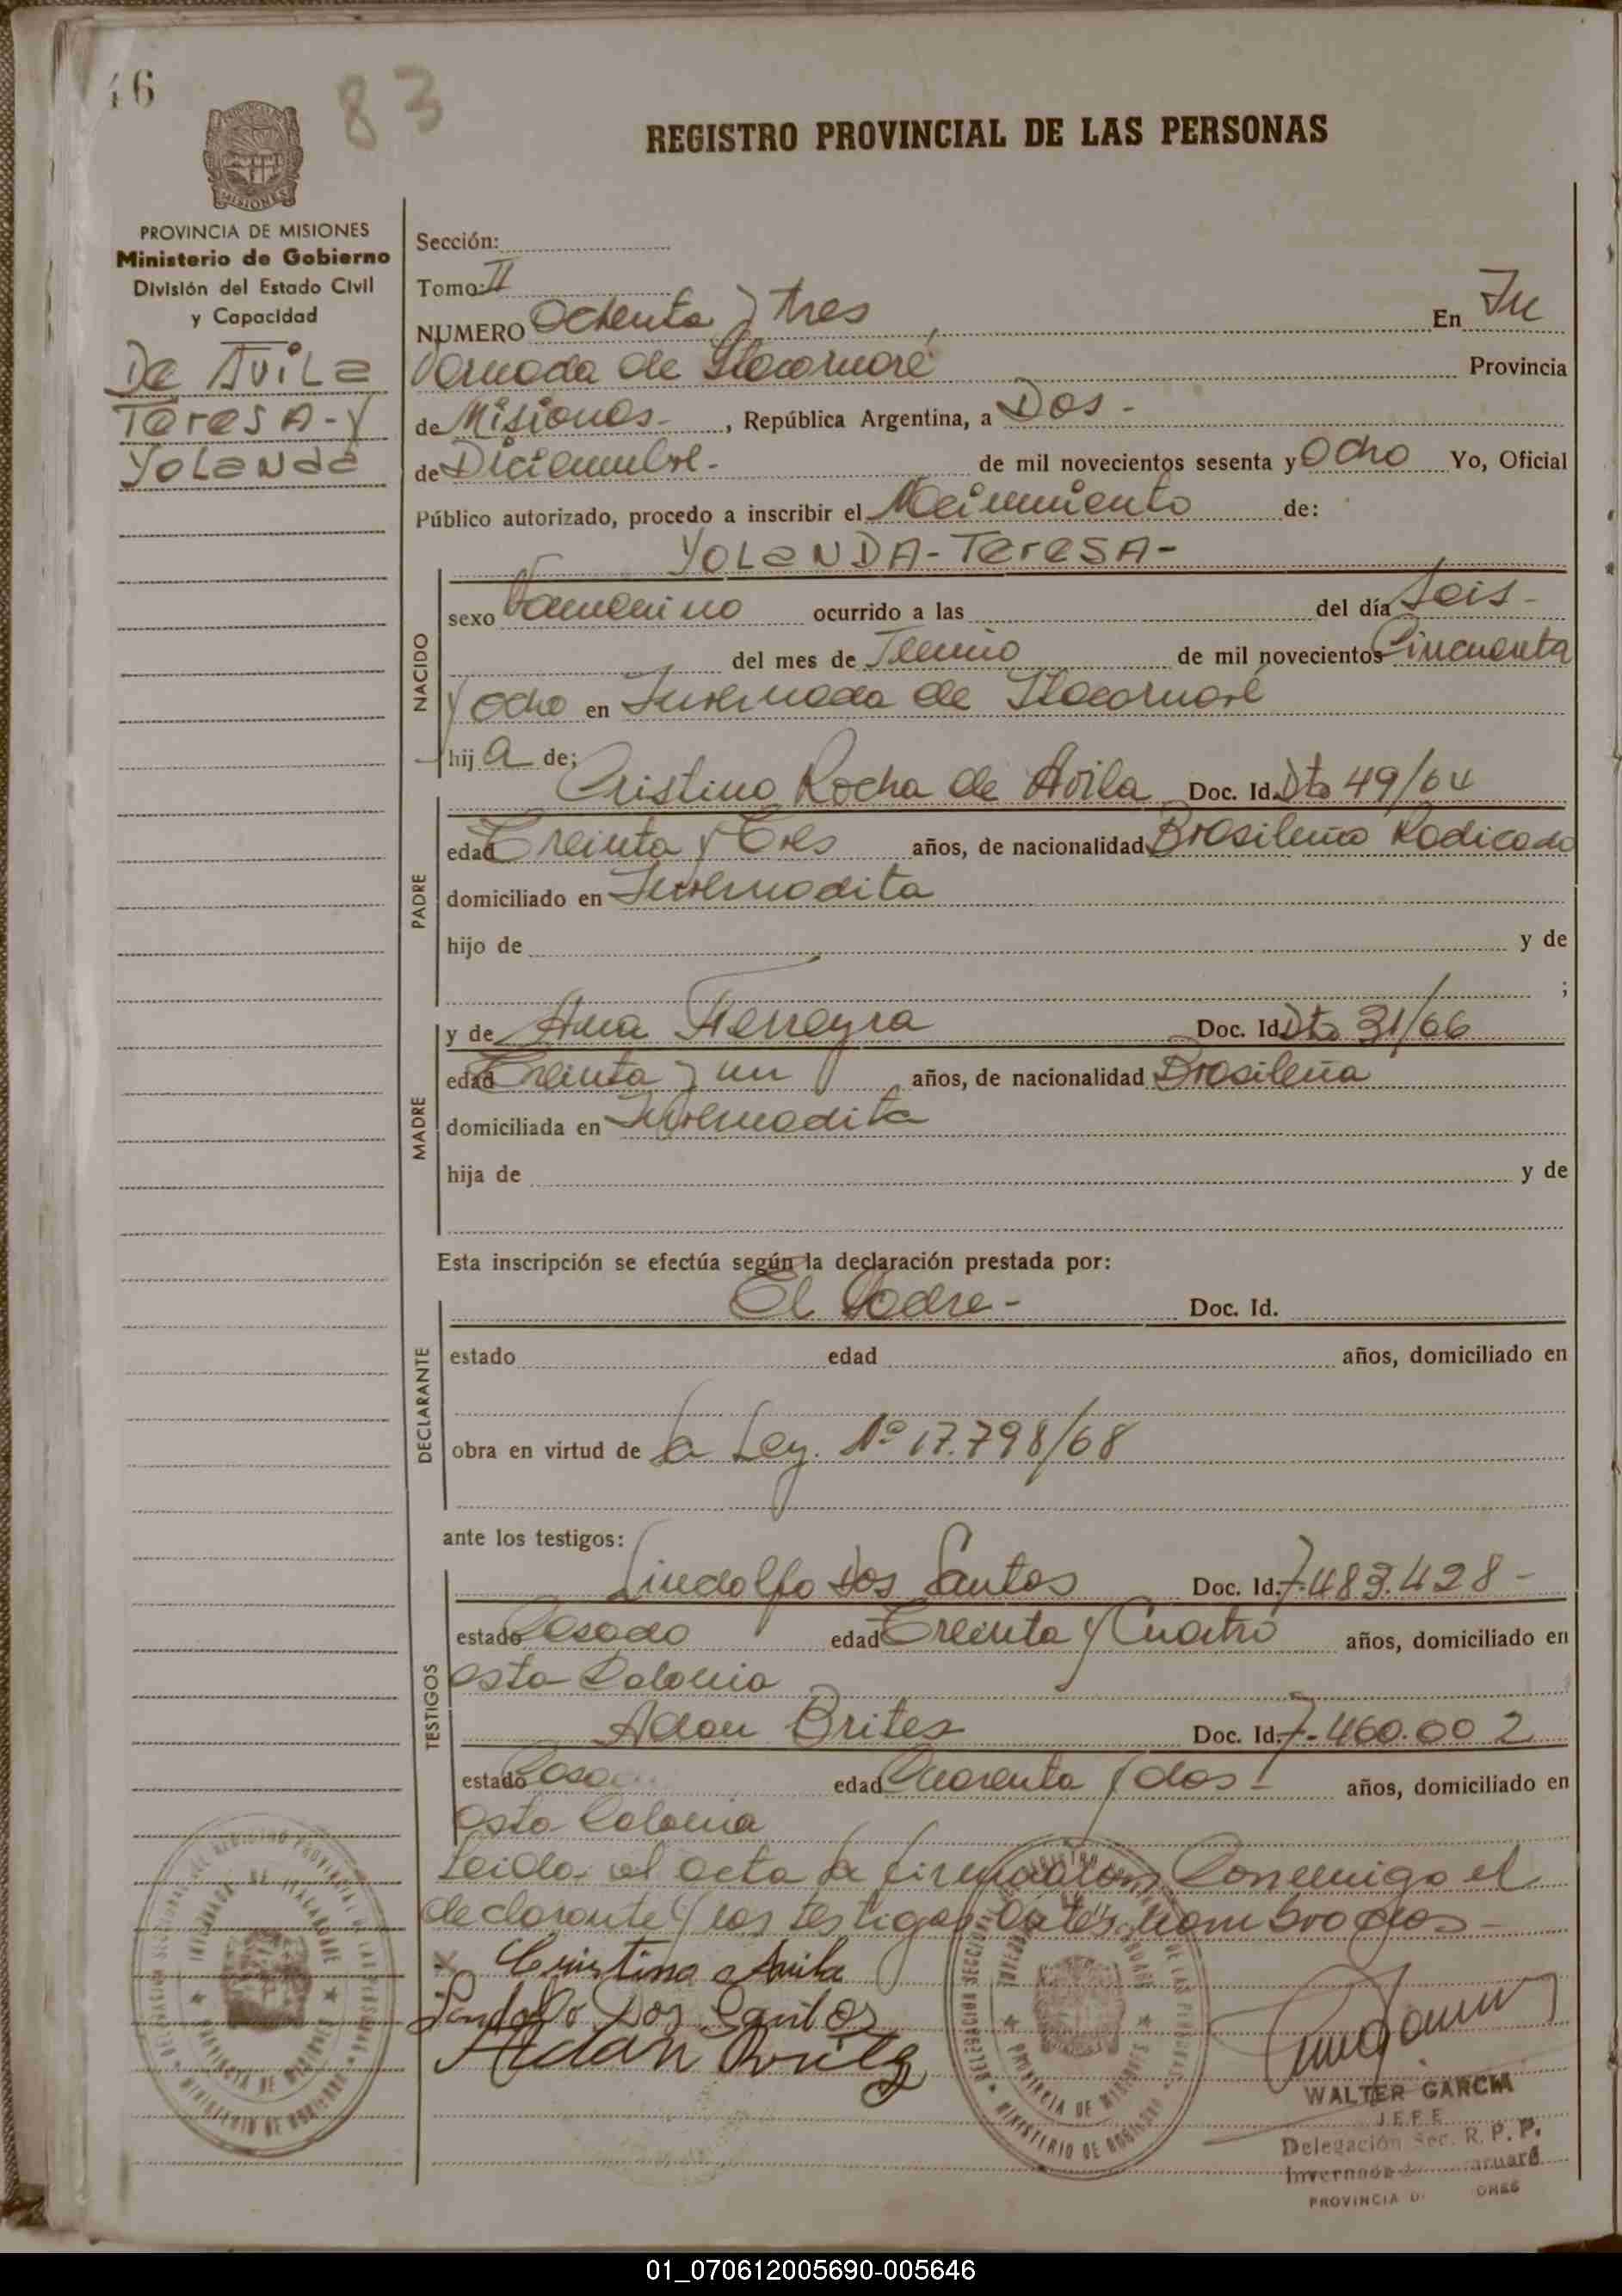 46
83
REGISTRO PROVINCIAL DE LAS PERSONAS
PROVINCIA DE MISIONES
Ministerio de Gobierno
División del Estado Civil
y Capacidad
De Avila
Teresa-Y
Yolanda
Sección:
Tomo: II
NUMERO Ochenta y tres, En In
vernada de Itacaruaré Provincia
de Misiones-, República Argentina, a Dos-
de Diciembre- de mil novecientos sesenta y Ocho Yo, Oficial
Público autorizado, procedo a inscribir el Nacimiento de:
YOLANDA-TERESA-
NACIDO
sexo Femenino ocurrido a las del día Seis-
del mes de Junio de mil novecientos Cincuenta
y ocho en Invernada de Itacaruaré
hij a de;
PADRE
Cristino Rocha de Avila Doc. Id. Dto 49/64
edad Treinta y Tres años, de nacionalidad Brasileño Radicado
domiciliado en Invernadita
hijo de y de
;
MADRE
y de Ana Ferreyra Doc. Id. Dto 31/66
edad Treinta y un años, de nacionalidad Brasileña
domiciliada en Invernadita
hija de y de
Esta inscripción se efectúa según la declaración prestada por:
DECLARANTE
El Padre- Doc. Id.
estado edad años, domiciliado en
obra en virtud de la Ley. Nº 17.798/68
ante los testigos:
TESTIGOS
Lindolfo Dos Santos Doc. Id. 7.483.428-
estado Casado edad Treinta y Cuatro años, domiciliado en
esta Colonia
Adan Brites Doc. Id. 7.460.002
estado Casa edad Cuarenta y dos- años, domiciliado en
esta Colonia
Leida el acta la firmaron Conmigo el
declarante y los testigos antes nombrados-
Cristino Avila
Lindolfo Dos Santos
Adan Brites
WALTER GARCIA
JEFE
Delegación Sec. R. P. P.
Invernada aruaré
PROVINCIA D ONES
01_070612005690-005646